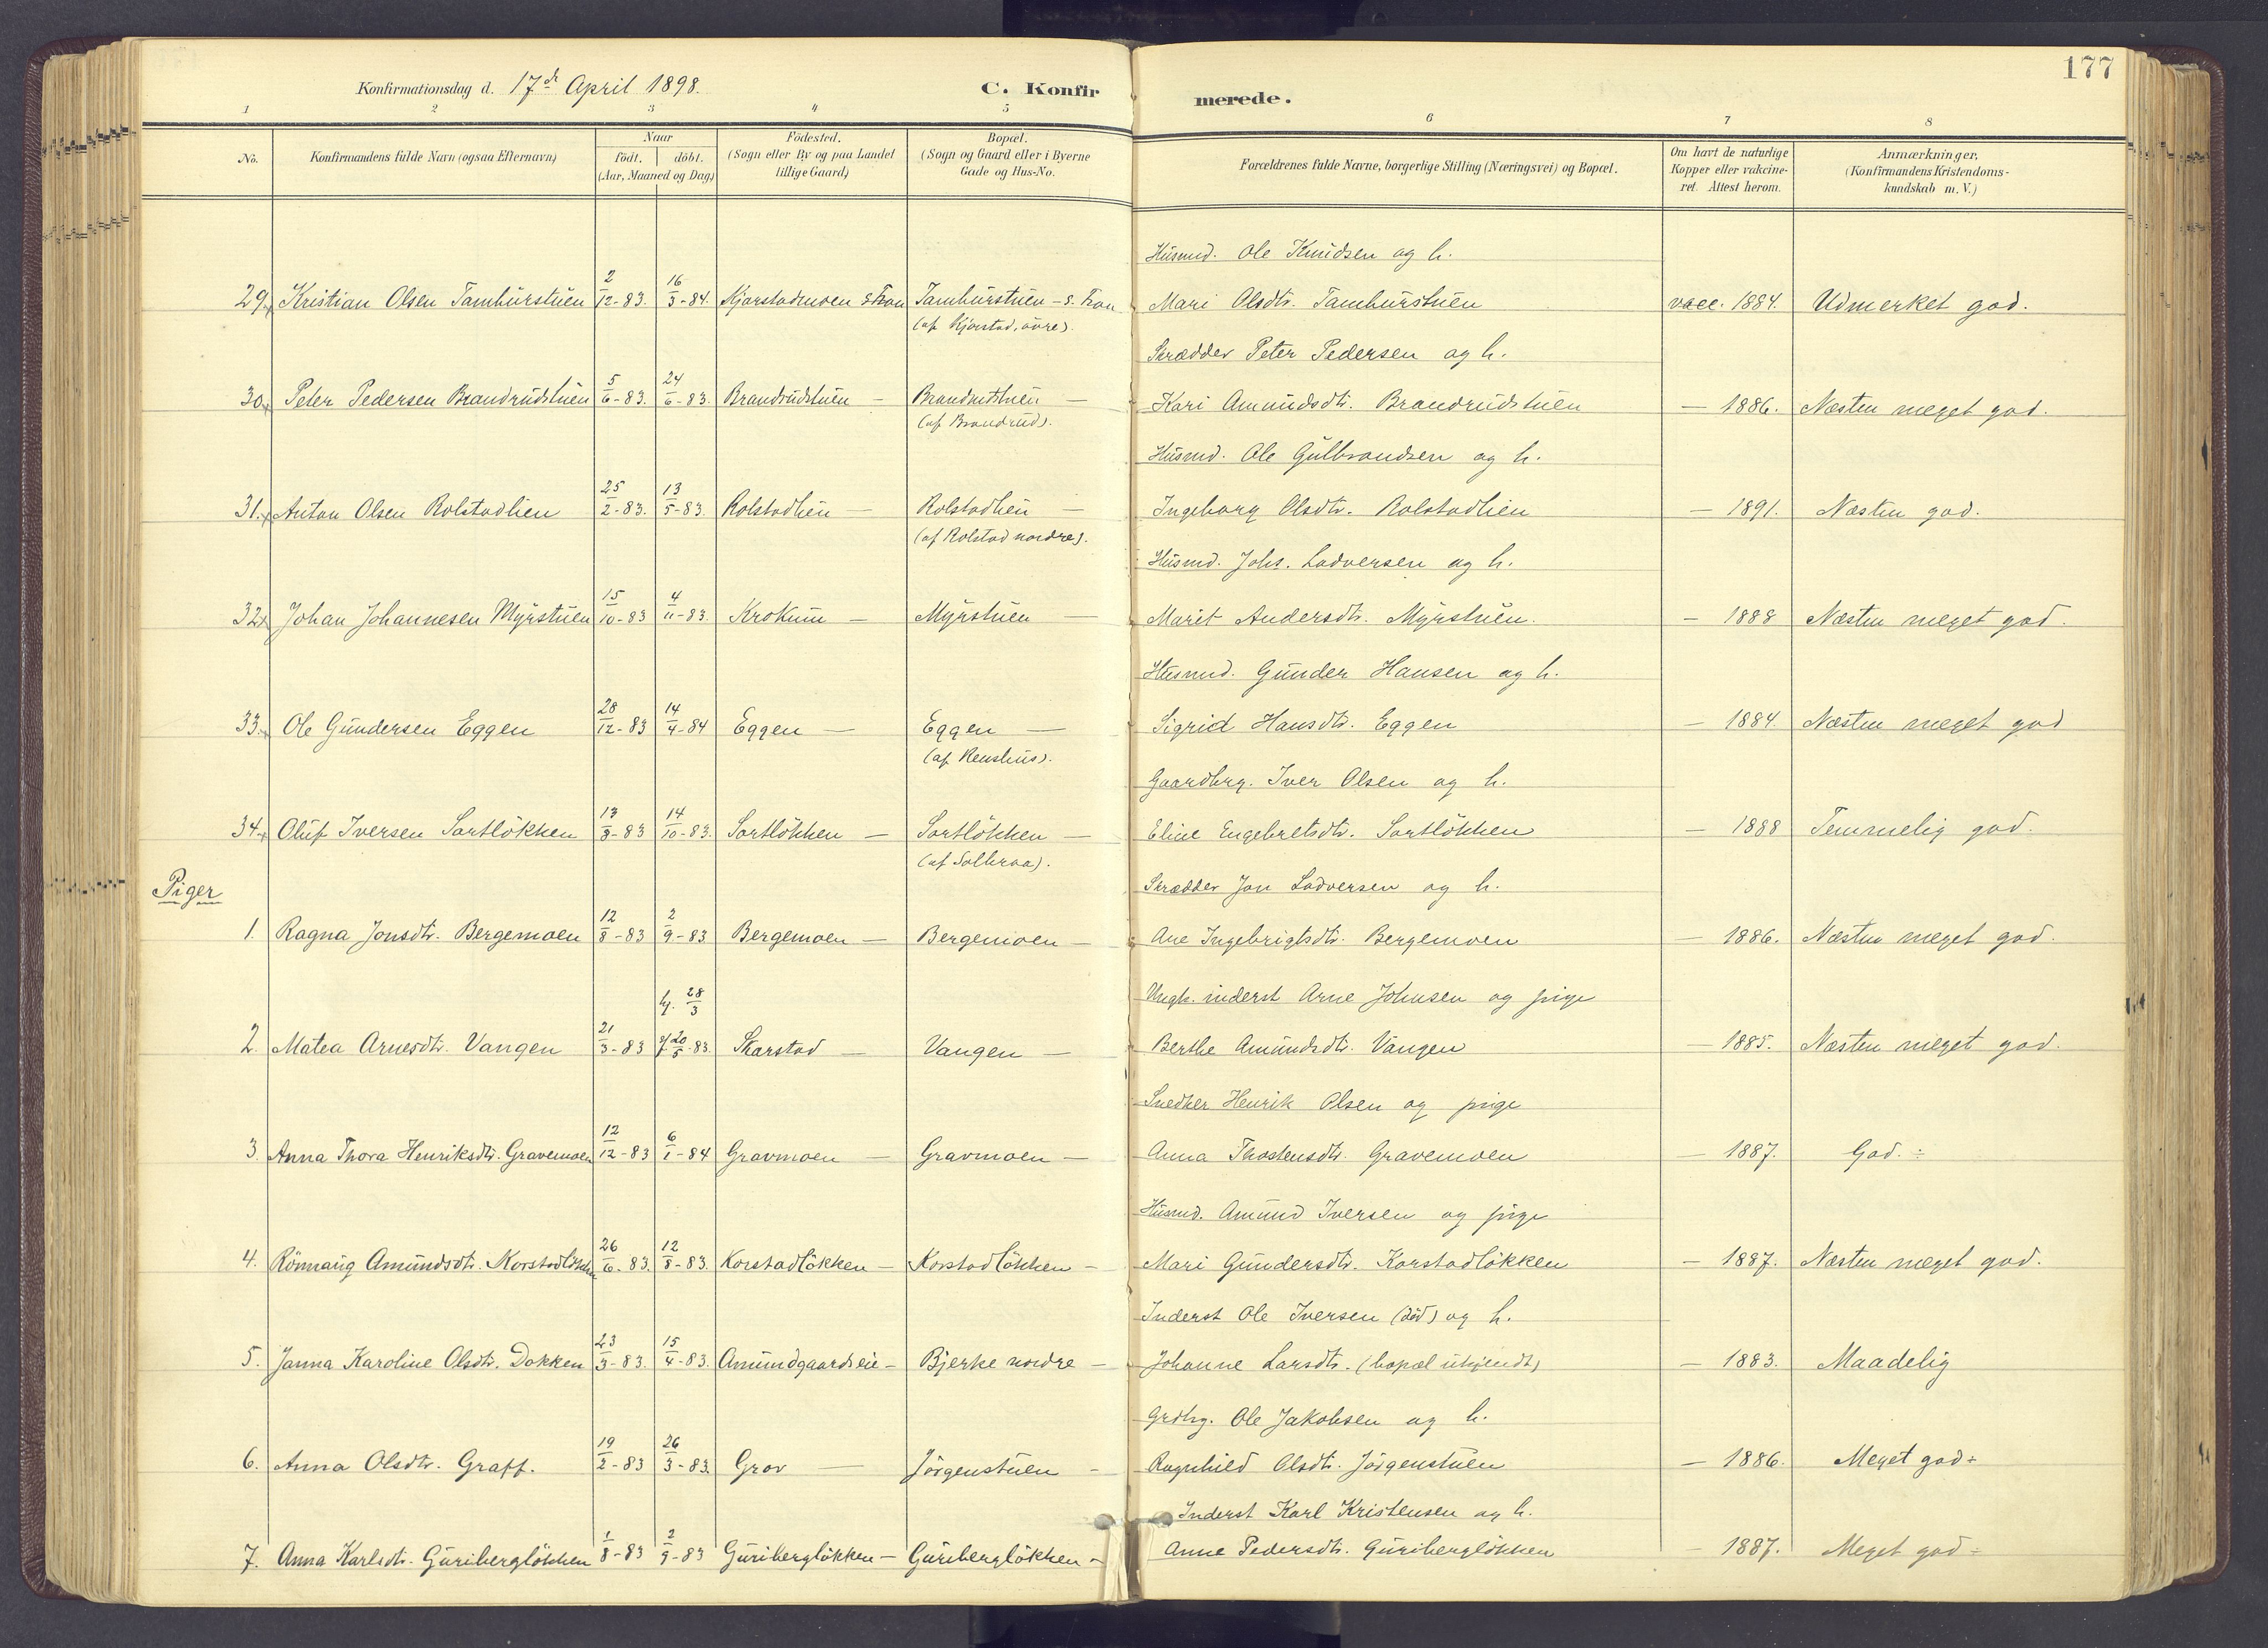 177
Konfirmationsdag d. 17de April 1898.
C. Konfirmerede.
1 2 3 4 5 6 7 8
No. Konfirmandens fulde Navn (ogsaa Efternavn) Naar født. døbt. (Aar, Maaned og Dag) Födested. (Sogn eller By og paa Landet tillige Gaard) Bopæl. (Sogn og Gaard eller i Byerne Gade og Hus-No. Forældrenes fulde Navne, borgerlige Stilling (Næringsvei) og Bopæl. Om havt de naturlige Kopper eller vakcineret. Attest herom. Anmærkninger, (Konfirmandens Kristendomskundskab m. V.)
Husmd. Ole Knudsen og h.
29. Kristian Olsen Tamburstuen 2/12-83. 16/3-84. Kjorstadmoen S. Fron Tamburstuen - S. Fron Mari Olsdtr. Tamburstuen vacc. 1884. Udmerket god.
(af Kjorstad, øvre).
Skrædder Peter Pedersen og h.
30. Peter Pedersen Brandrudstuen 5/6-83. 24/6-83. Brandrudstuen — Brandrudstuen — Kari Amundsdtr. Brandrudstuen — 1886. Næsten meget god.
(af Brandrud).
Husmd. Ole Gulbrandsen og h.
31. Anton Olsen Rolstadlien 25/2-83. 13/5-83. Rolstadlien — Rolstadlien — Ingeborg Olsdtr. Rolstadlien — 1891. Næsten god.
(af Rolstad nordre).
Husmd. Johs. Lodversen og h.
32. Johan Johannesen Myrstuen 15/10-83 4/11-83. Krokum — Myrstuen — Marit Andersdtr. Myrstuen. — 1888 Næsten meget god.
Husmd. Gunder Hansen og h.
33. Ole Gundersen Eggen 28/12-83 14/4-84 Eggen — Eggen — Sigrid Hansdtr. Eggen — 1884. Næsten meget god
(af Renshus).
Gaardbrg. Iver Olsen og h.
34. Oluf Iversen Sortløkken 13/8-83 14/10-83. Sortløkken — Sortløkken — Eline Engebretsdtr. Sortløkken — 1888 Temmelig god.
(af Solbraa).
Piger
Skrædder Jon Lodversen og h.
1. Ragna Jonsdtr. Bergemoen 12/8-83 2/9-83. Bergemoen — Bergemoen — Ane Ingebrigtsdtr. Bergemoen — 1886. Næsten meget god.
hj. 28/3 Ungk. inderst Arne Johnsen og pige
2. Matea Arnesdtr. Vangen 21/3-83 20/5-83. Skarstad — Vangen — Berthe Amundsdtr. Vangen — 1885. Næsten meget god.
Snedker Henrik Olsen og pige
3. Anna Thora Henriksdtr. Gravemoen 12/12-83 6/1-84 Gravmoen — Gravmoen — Anna Thostensdtr. Gravemoen — 1887. God. ÷
Husmd. Amund Iversen og pige
4. Rönnaug Amundsdtr. Korstadløkken 26/6-83. 12/8-83. Korstadløkken — Korstadløkken — Mari Gundersdtr. Korstadløkken — 1887. Næsten meget god.
Inderst Ole Iversen (død) og h.
5. Janna Karoline Olsdtr. Dokken 23/3-83. 15/4-83. Amundgaardseie — Bjerke nordre — Johanne Larsdtr. (bopæl ukjendt) — 1883. Maadelig
Grdbrg. Ole Jakobsen og h.
6. Anna Olsdtr. Graff. 19/2-83 26/3-83. Grov — Jörgenstuen — Ragnhild Olsdtr. Jörgenstuen — 1886. Meget god ÷
Inderst Karl Kristensen og h.
7. Anna Karlsdtr. Guribergløkken 1/8-83 2/9-83 Guribergløkken — Guribergløkken — Anne Pedersdtr. Guribergløkken — 1887. Meget god ÷